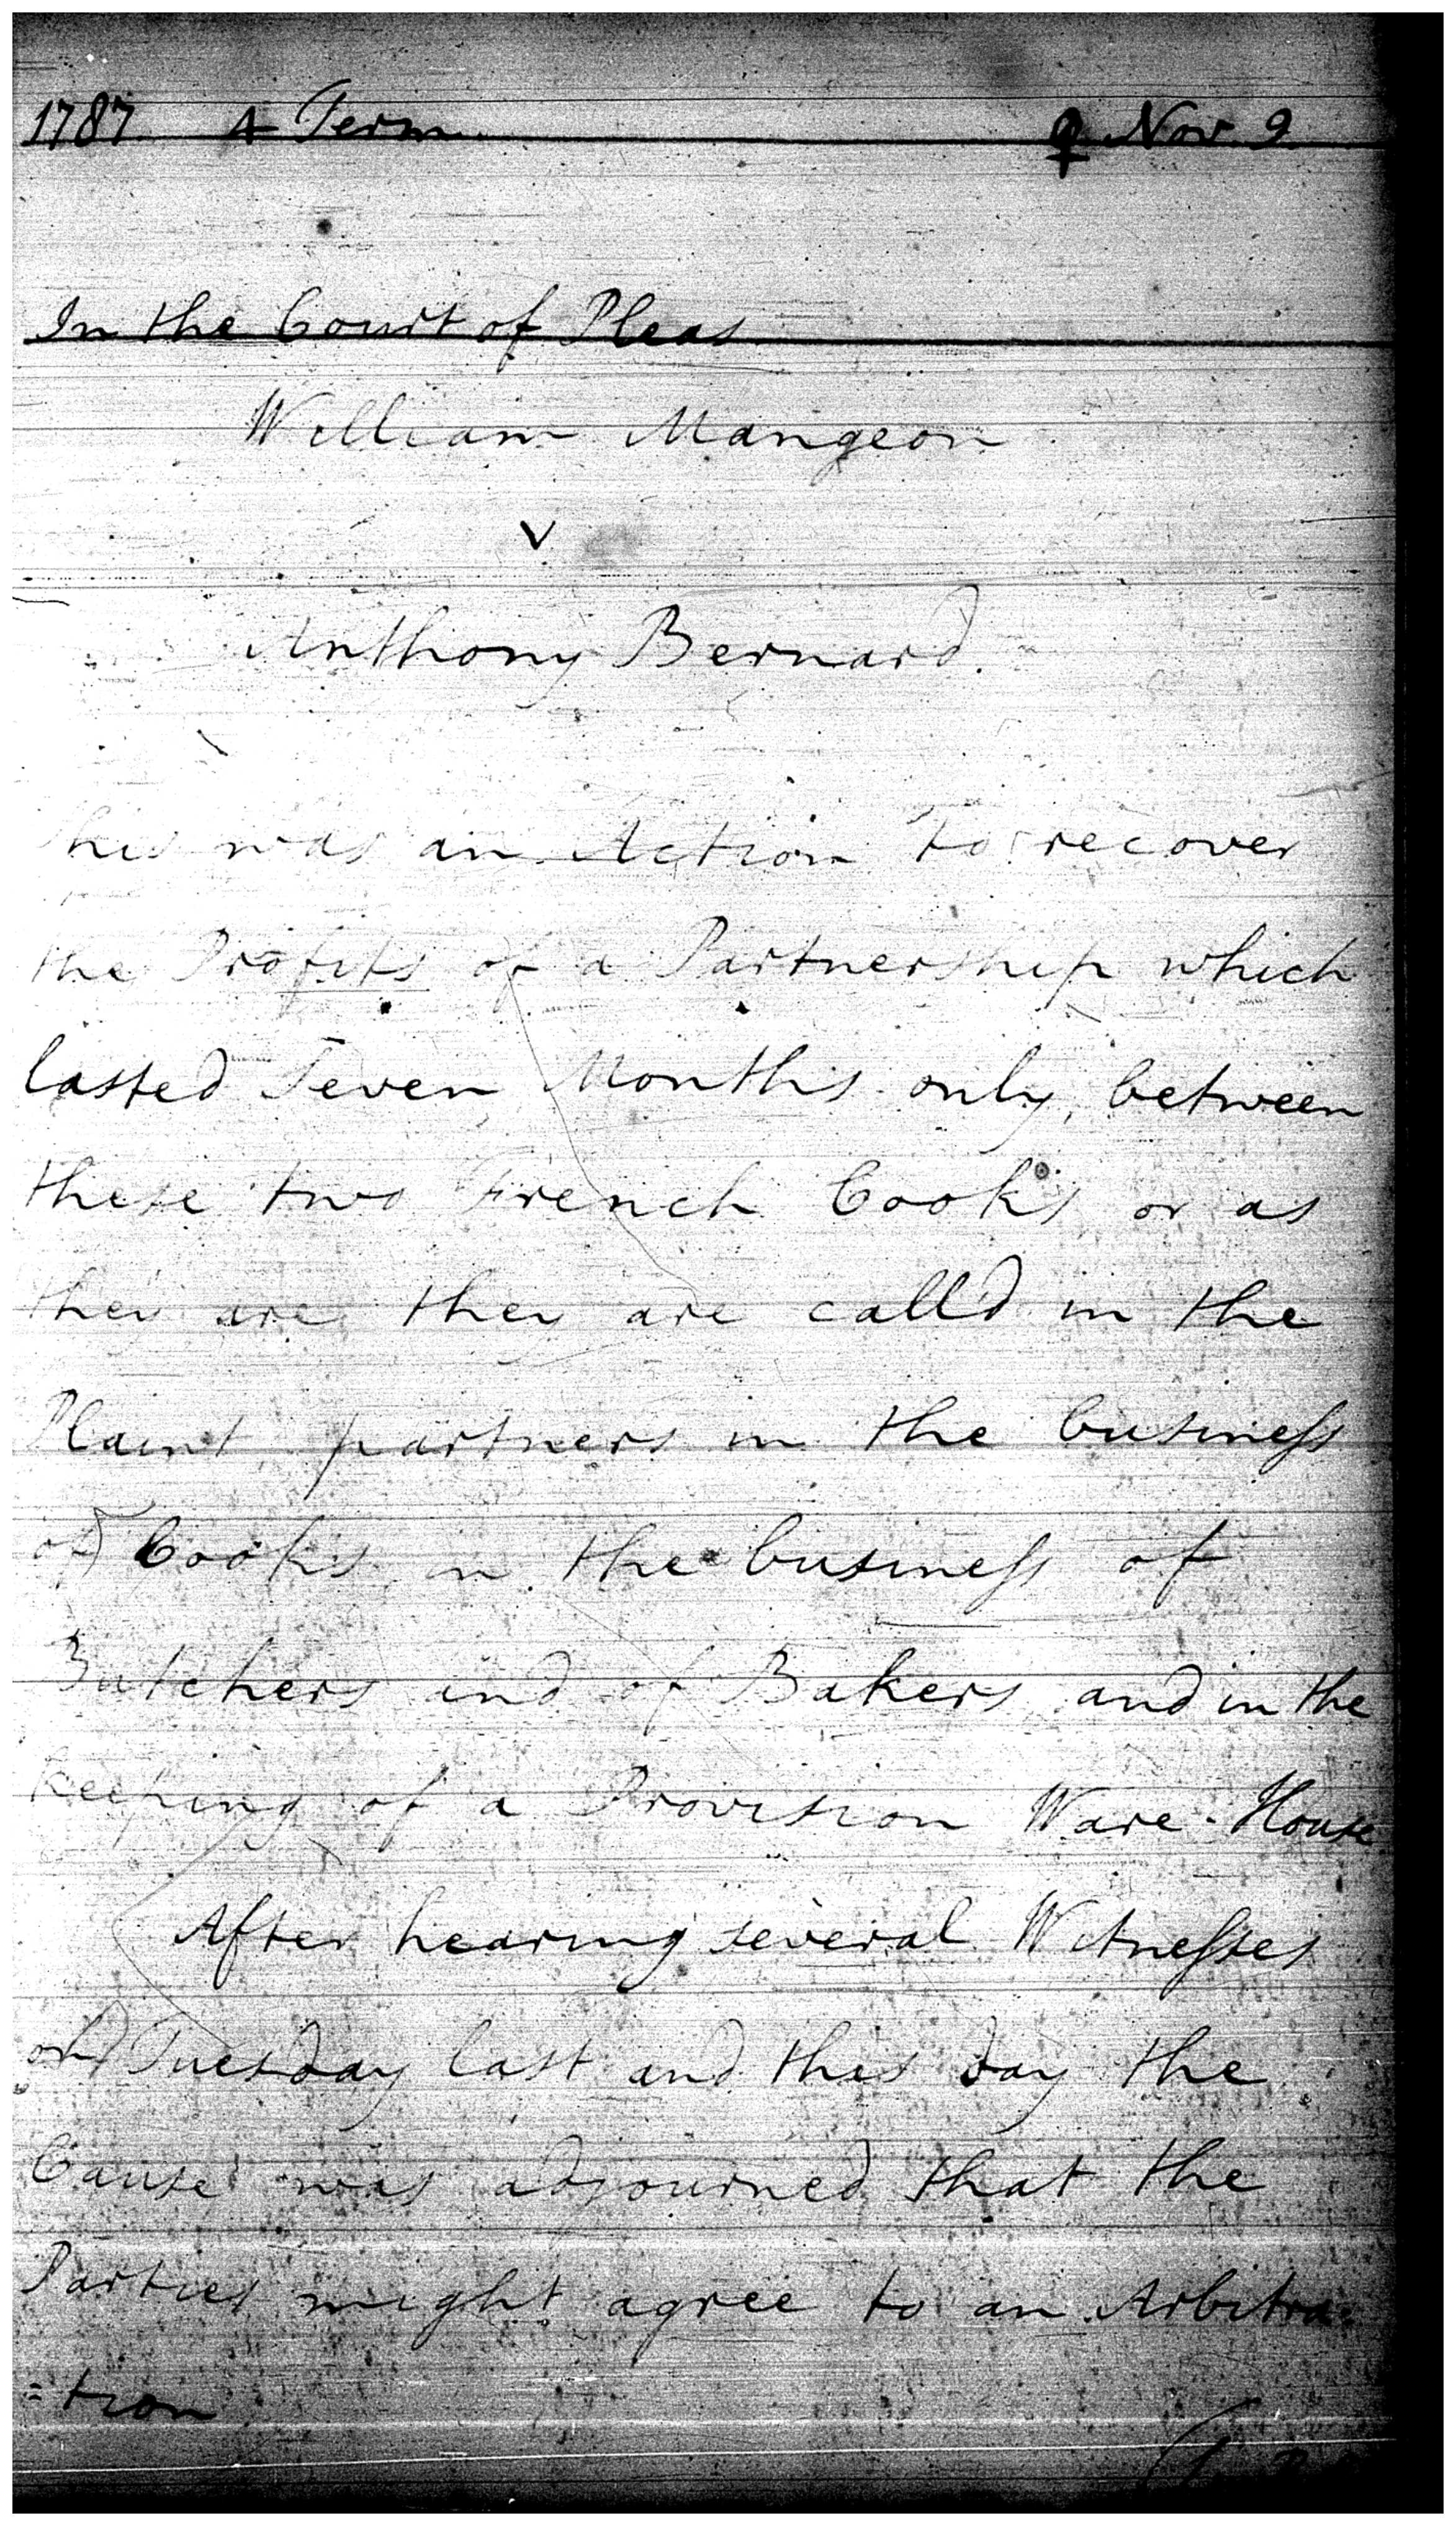 1787 A Term ♀ Nov. 9
In the Court of Pleas
William Mangeon
v
Anthony Bernard.
This was an Action to recover
the Profits of a Partnership which
lasted Seven Months only, between
these two French Cooks or as
they are they are calld in the
Plaint partners in the business
of Cooks in the business of
Butchers and of Bakers and in the
keeping of a Provision Ware-House
After hearing several Witnesses
on Tuesday last and this day the
Cause was adjourned that the
Parties might agree to an Arbitra=
=tion